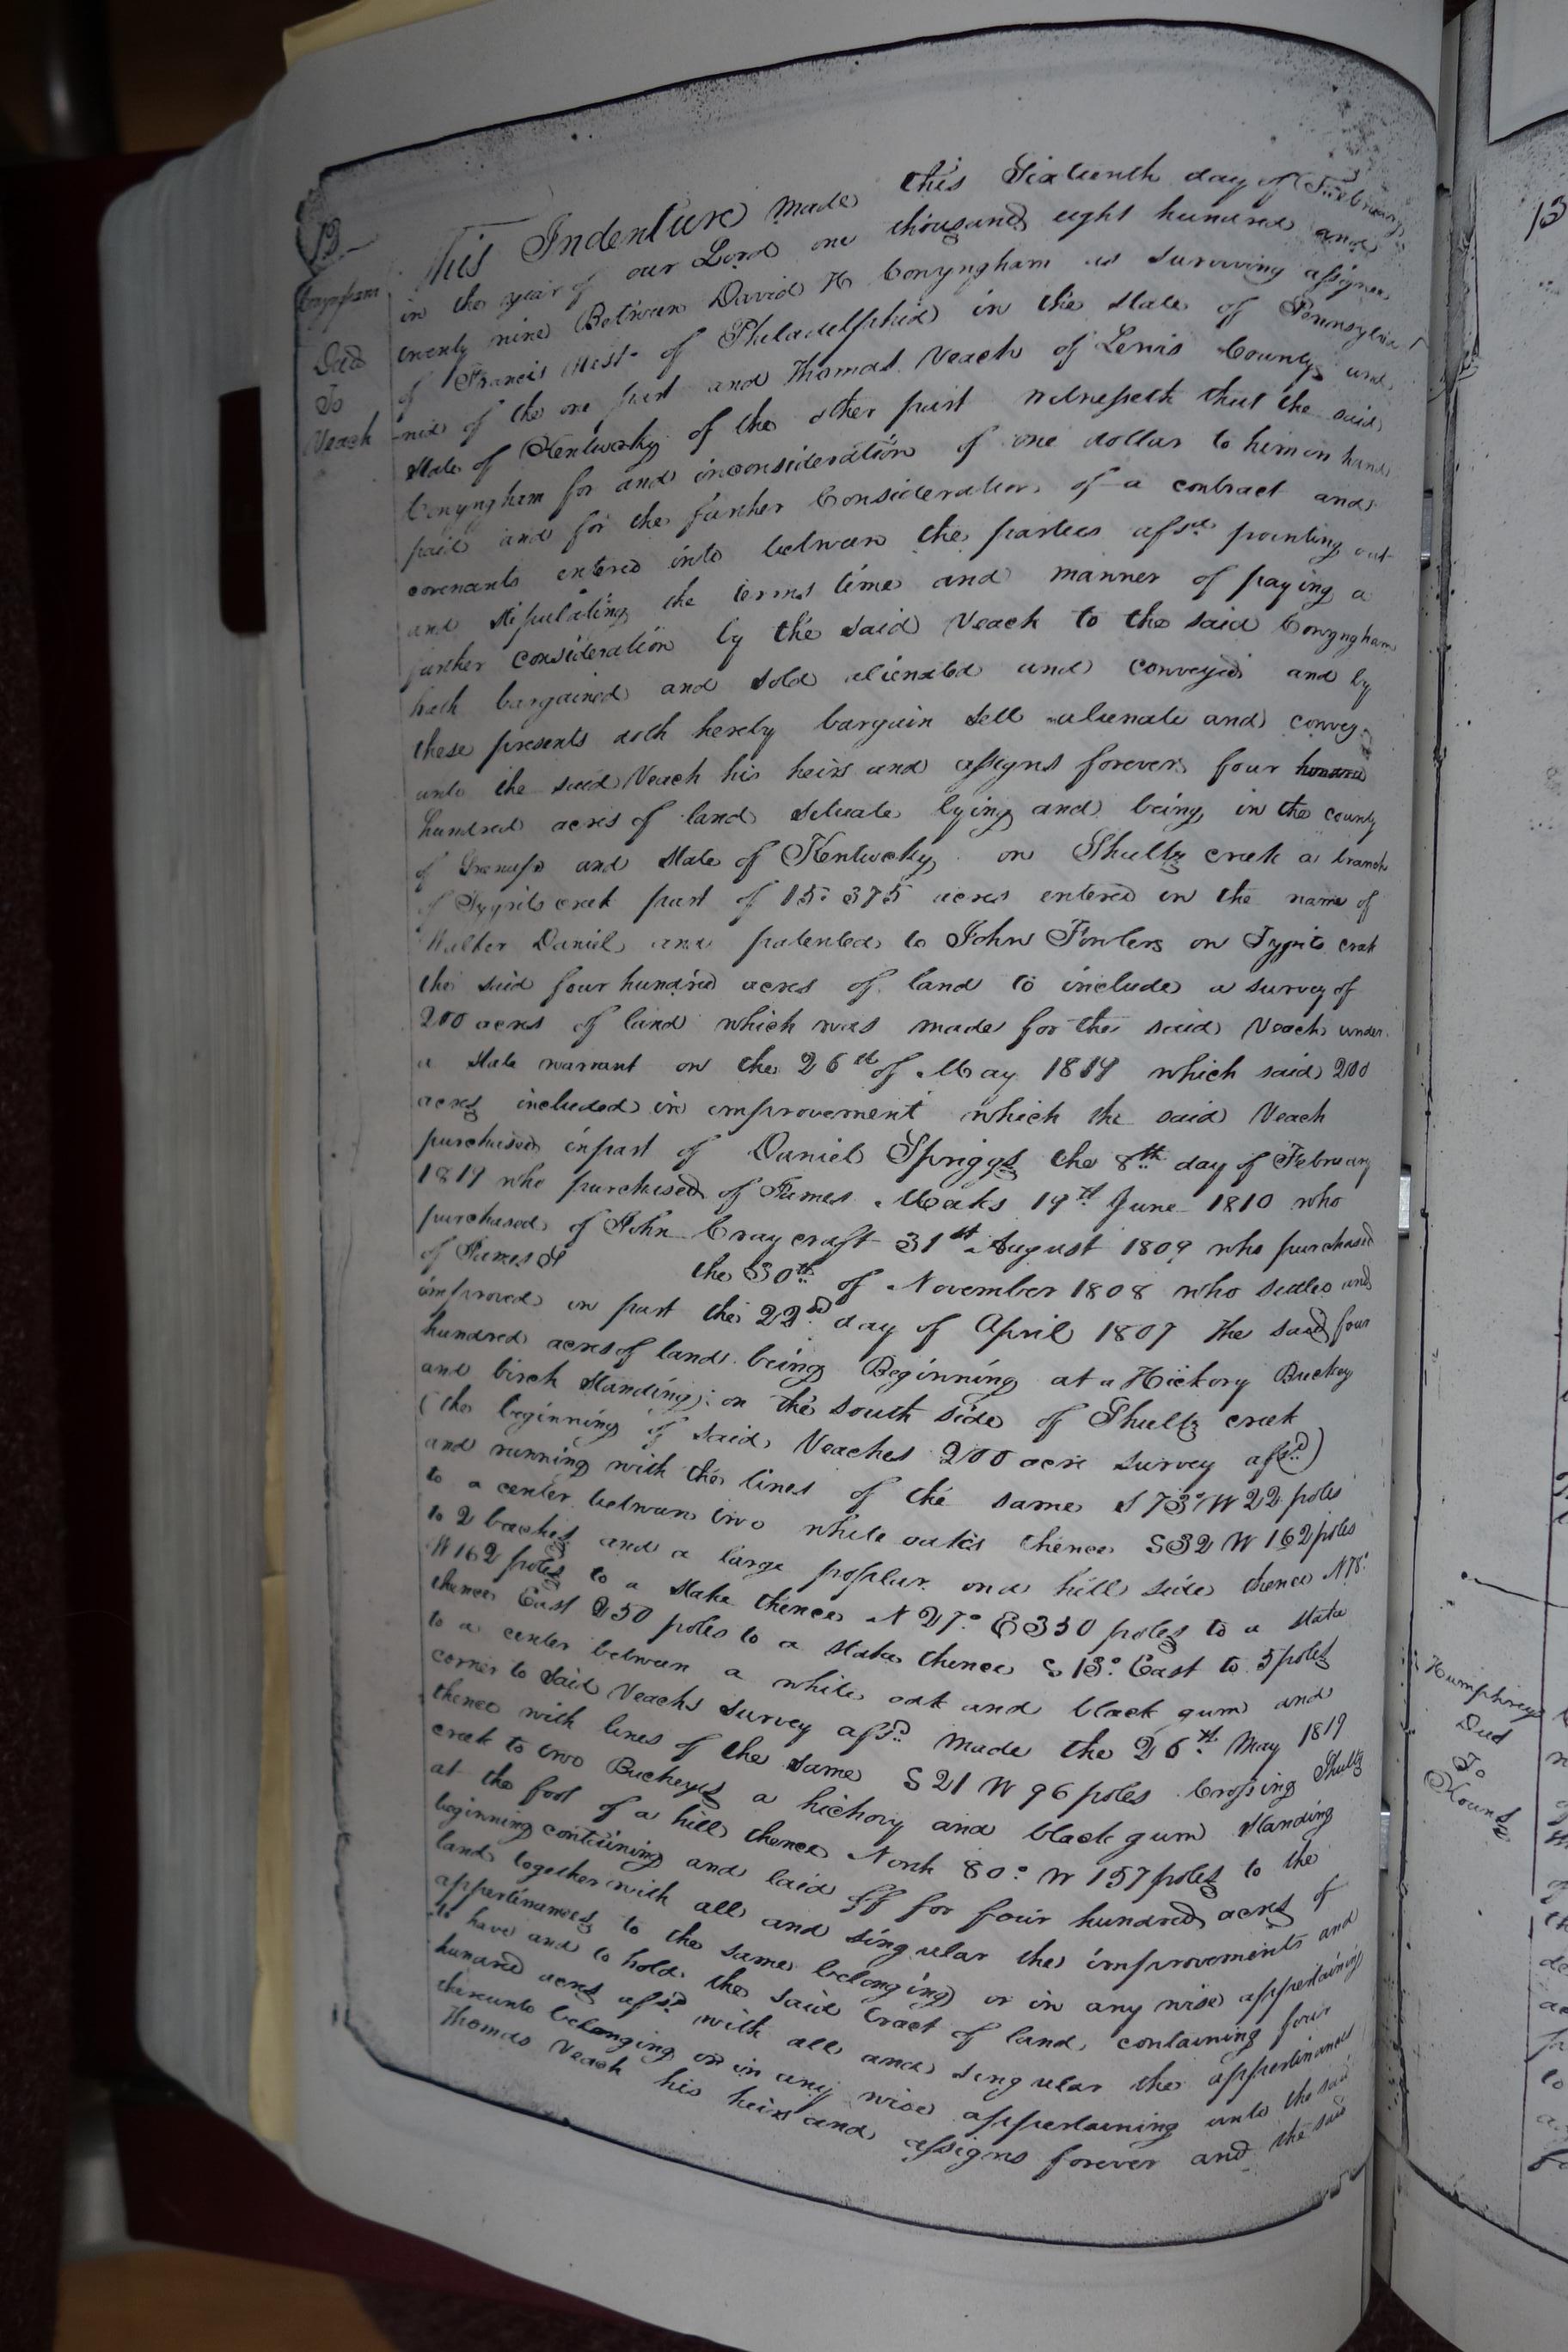 13
Conyngham
Deed
To
Veach
This Indenture made this Sixteenth day of February
in the year of our Lord one thousand eight hundred and
twenty nine Between David H Conyngham as surviving assignee
of Francis West of Philadelphia in the state of Pennsylva
-nia of the one part and Thomas Veach of Lewis County and
state of Kentucky of the other part witnesseth that the said
Conyngham for and inconsideration of one dollar to him in hand
paid and for the further Consideration of a contract and
covenants entered into between the parties afsd pointing out
and stipulating the terms time and manner of paying a
further consideration by the said Veach to the said Conyngham
hath bargained and sold alienated and conveyed and by
these presents doth hereby bargain sell alienate and convey
unto the said Veach his heirs and assigns forever four
hundred acres of land situate lying and being in the county
of Greenup and state of Kentucky on Shultz creek a branch
of Tygrits creek part of 15375 acres entered in the name of
Walker Daniel and patented to John Fowler on Tygrits creek
the said four hundred acres of land to include a survey of
200 acres of land which was made for the said Veach under
a state warrant on the 26th of May 1819 which said 200
acres included in improvement which the said Veach
purchised inpart of Daniel Spriggs the 8th day of February
1819 who purchased of James Meaks 19th June 1810 who
purchased of John Craycraft 31st August 1809 who purchased
of James St the 30th of November 1808 who settled and
improved in part the 22nd day of April 1807 The said four
hundred acres of land being Beginning at a Hickory Buckey
and birch standing on the south side of Shultz creek
(the beginning of said Veaches 200 acre survey afsd)
and running with the lines of the same S 73° W 22 poles
to a center between two white oaks thence S32 W 162 poles
to 2 beaches and a large poplar on a hill side thence N 78°
W 162 poles to a stake thence N 27° E 330 poles to a stake
thence East 250 poles to a stake thence S 13° East to 5 poles
to a center between a white oak and black gum and
corner to said Veachs survey afsd made the 26th May 1819
thence with lines of the same S 21 W 96 poles Crossing Shultz
creek to two Buckeyes a hickory and black gum standing
at the foot of a hill thence North 80° W 157 poles to the
beginning containing and laid off for four hundred acres of
land together with all and singular the improvements and
appertinances to the same belonging or in any wise appertaining
to have and to hold the said tract of land containing four
hundred acres afsd with all and singular the appertinances
thereunto belonging or in any wise appertaining unto the said
Thomas Veach his heirs and assigns forever and the said
13
Humphreys
Deed
To